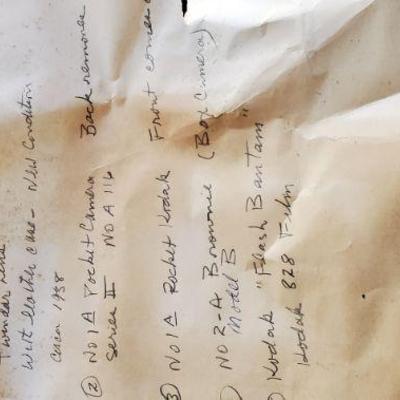 with leather case - New Condition
Circa 1938
② NO 1A Pocket Camera Back removes
Series II NO A 116
③ NO 1A Pocket Kodak Front comes
NO 2-A Brownie (Box Camera)
Model B
Kodak "Flash Bantam"
Kodak 828 Film